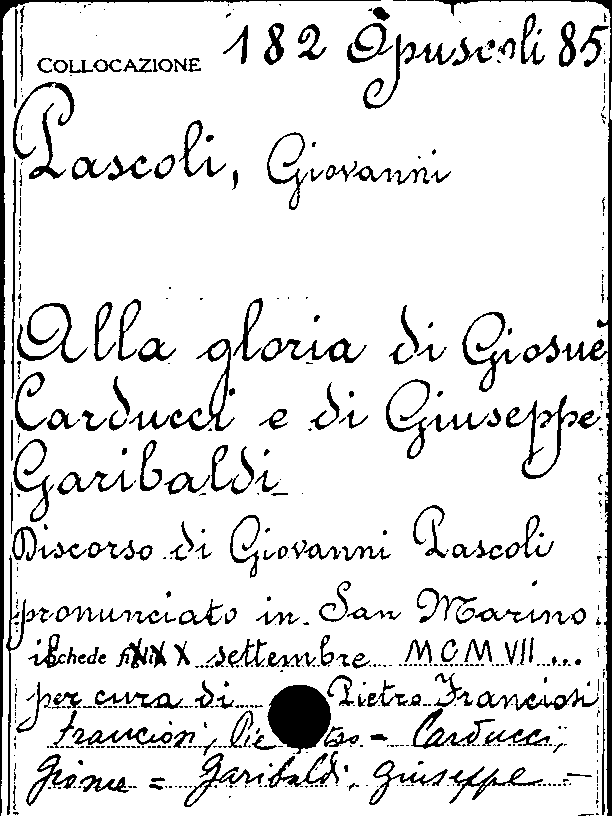 COLLOCAZIONE 182 Opuscoli 85
Pascoli, Giovanni
Alla gloria di Giosuè
Carducci e di Giuseppe
Garibaldi
Discorso di Giovanni Pascoli
pronunciato in San Marino
il XXX settembre MCMVII...
per cura di Pietro Franciosi
Franciosi, Pietro = Carducci,
Giosue = Garibaldi, Giuseppe =